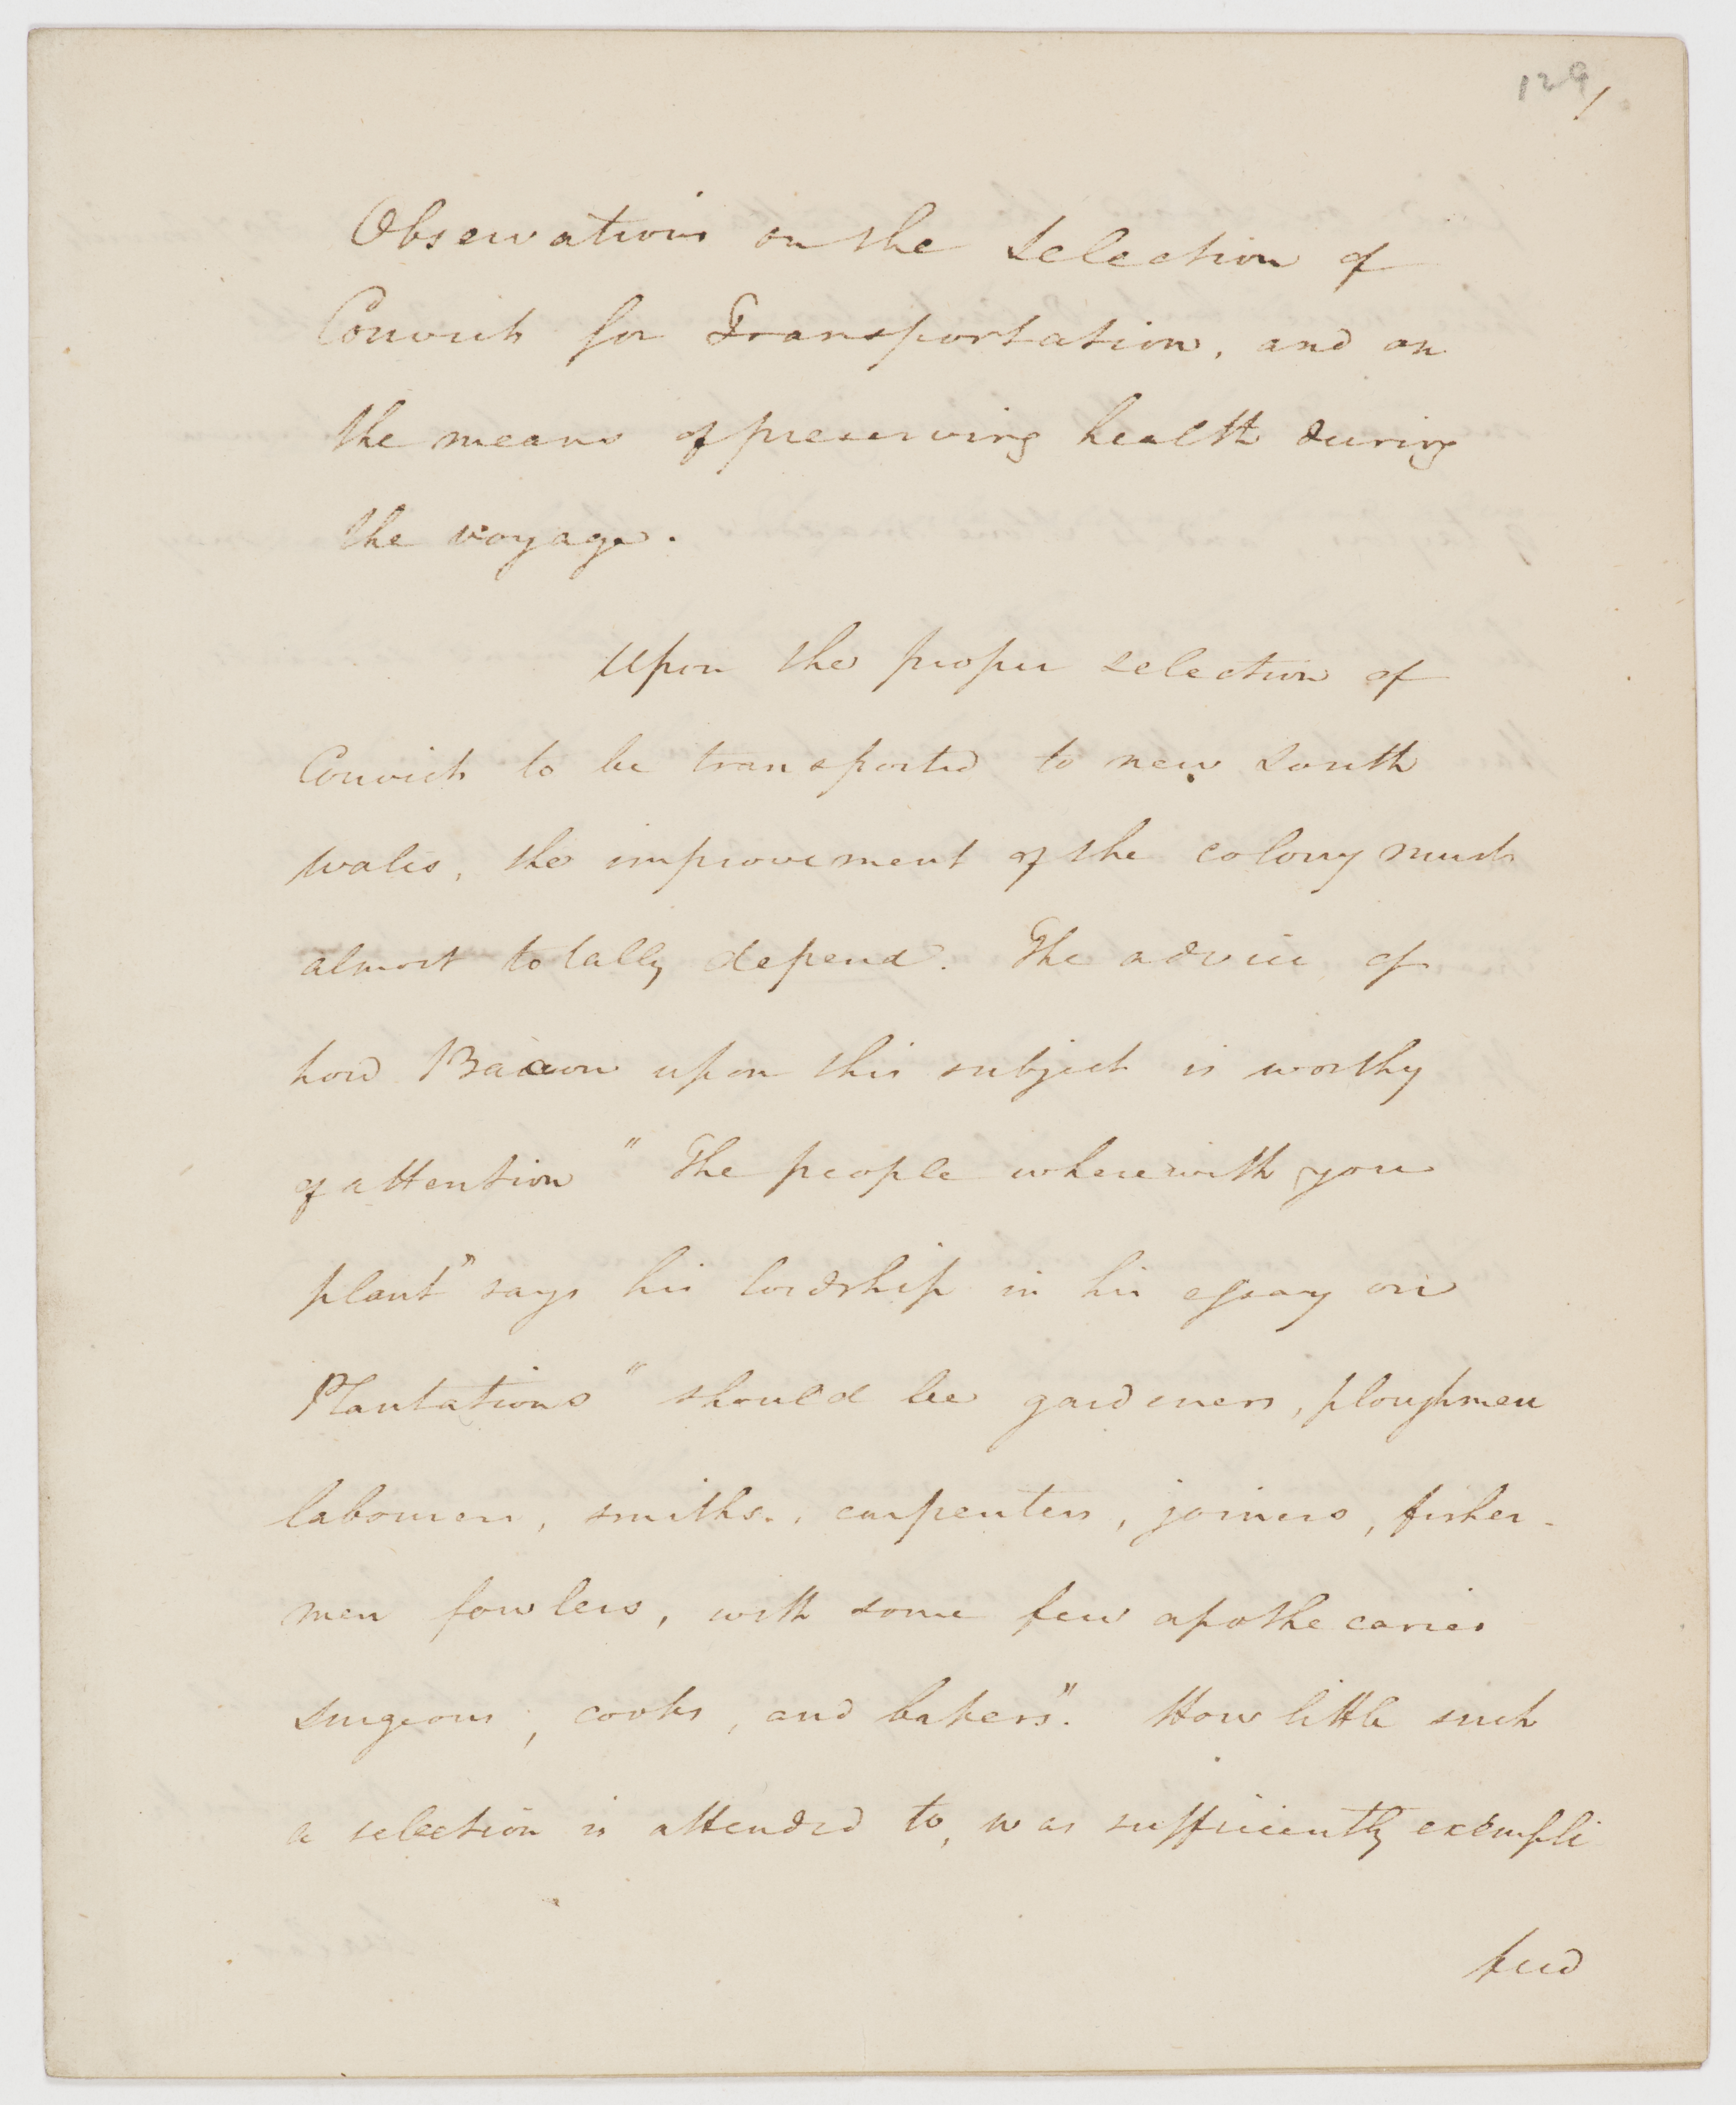 129
1
Observations on the Selection of
Convicts for Transportation, and on
the means of preserving health during
the voyage.
Upon the proper selection of
Convicts to be transported to new South
wales, the improvement of the colony must
almost totally depend. The advice of
Lord Bacon upon this subject is worthy
of attention "The people wherewith you
plant" says his lordship in his essay on
Plantations "should be gardeners, ploughmen
labourers, smiths., carpenters, joiners, fisher-
men fowlers, with some few apothecaries
surgeons, cooks, and bakers". How little such
a selection is attended to, was sufficiently exempli
fied